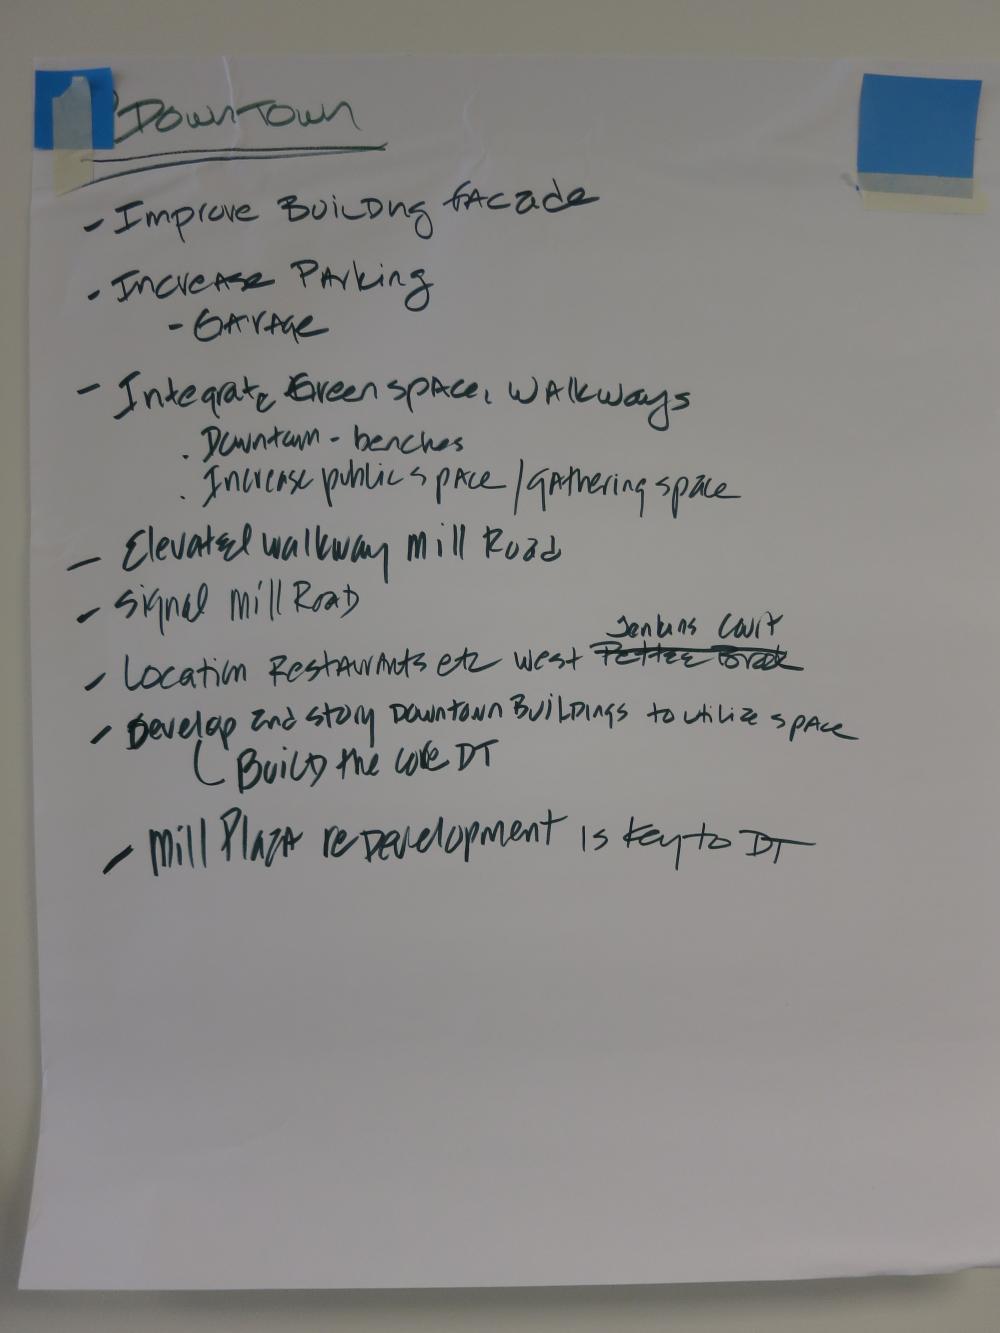 Downtown
- Improve Building facade
- Increase Parking
- Garage
- Integrate Green space, walkways
. Downtown - benches
. Increase public space / gathering space
- Elevated walkway Mill Road
- Signal Mill Road
Jenkins Court
- Location Restaurants etc west Pettee Brook
- Develop 2nd story Downtown Buildings to utilize space
Build the core DT
- Mill Plaza redevelopment is key to DT